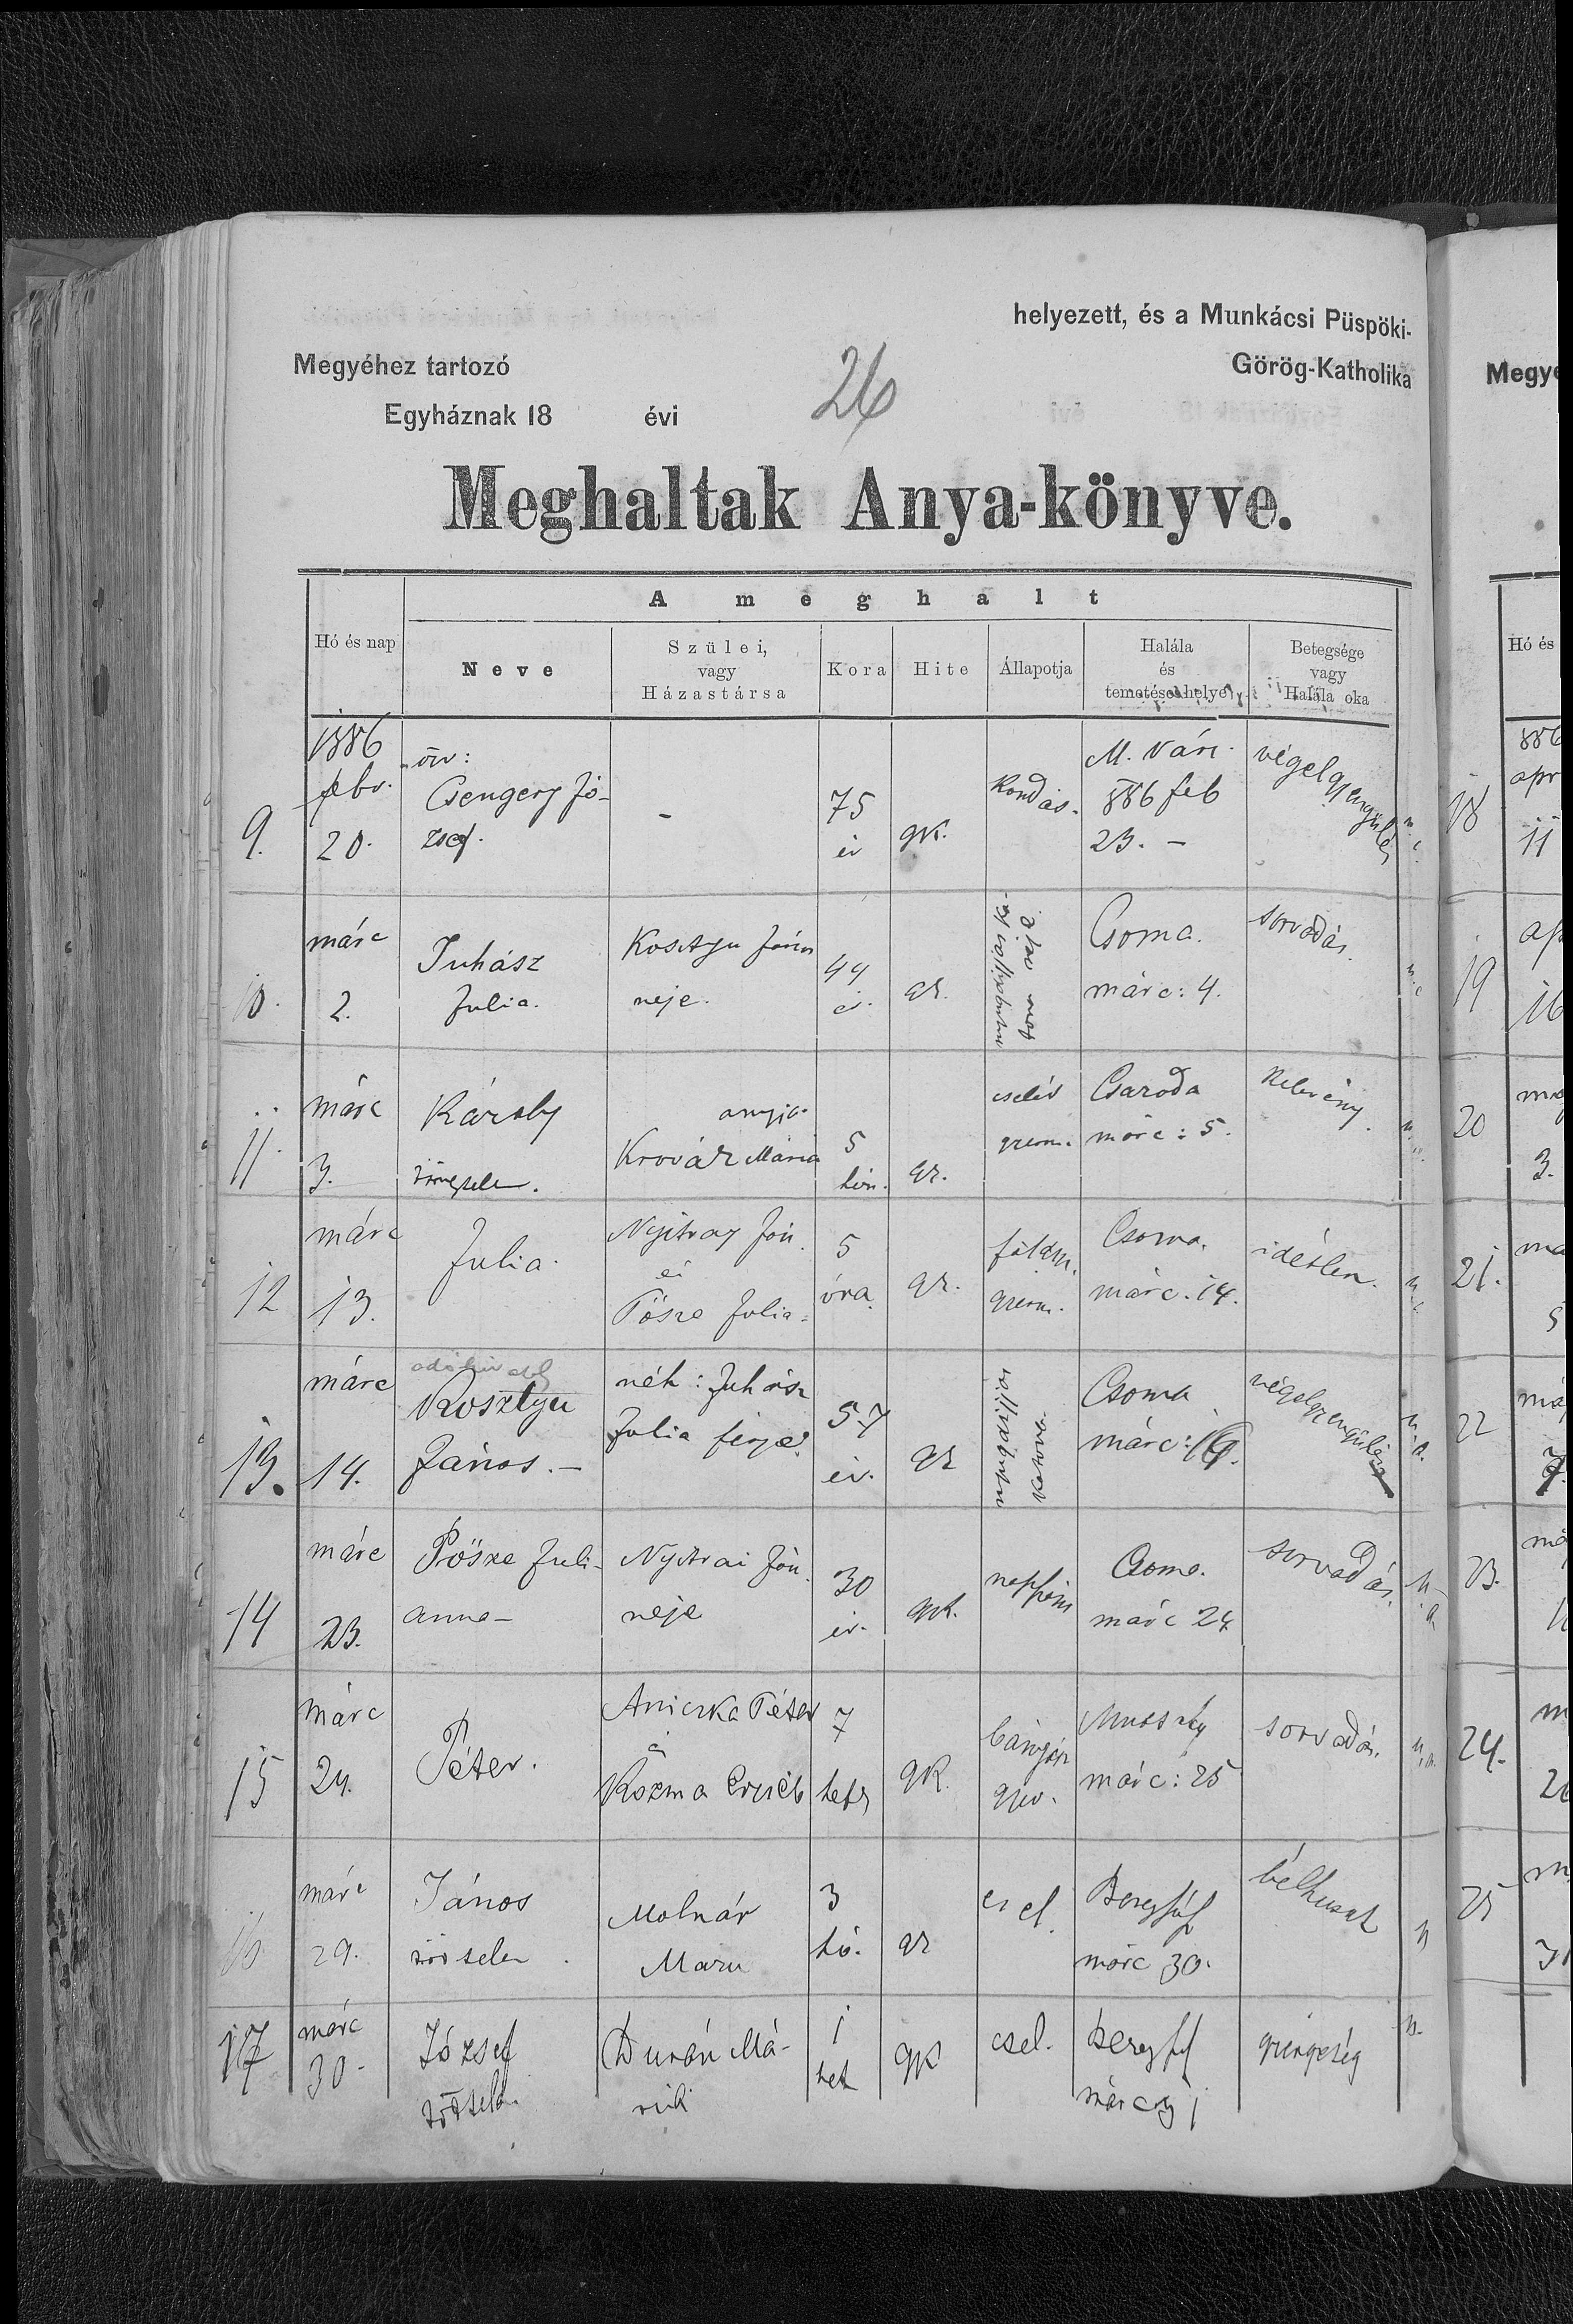 helyezett, és a Munkácsi Püspöki-
Megyéhez tartozó
Görög-Katholika
Egyháznak 18 évi
26
Meghaltak Anya-könyve.
A meghalt
Hó és nap
Neve
Szülei,
vagy
Házastársa
Kora
Hite
Állapotja
Halála
és
temetése helye
Betegsége
vagy
Halála oka
9.
1886
febr.
20.
özv:
Csengery Jó-
zsef.
-
75
év
gk.
Kondás.
M. Vári
886 feb
23. -
végelgyengülés
10.
márc
2.
Juhász
Julia.
Kosztyu János
neje.
44
év.
gk.
Csoma.
márc: 4.
sorvadás.
11.
márc
3.
Károly
anyja
Krovák Mária
5
hón.
gk.
cseléd
gyerm.
Csaroda
márc: 5.
Kelevény.
12
márc
13.
Julia.
Nyitray Ján.
és
Pősze Julia
5
óra.
gk.
földm.
gyerm.
Csoma.
márc. 14.
idétlen.
13.
márc
14.
Kosztyu
János. -
néh: Juhász
Julia férje
57
év.
gk
Csoma
márc: 16.
végelgyengülés
14
márc
23.
Pősze Juli-
anna -
Nyitrai Ján.
neje
30
év.
gk.
napszám
Csoma.
márc 24
sorvadás.
15
márc
24.
Péter.
Aniczka Péter
és
Kozma Erzséb
7
hetes
gk.
Muszky
márc: 25
sorvadás.
16
márc
29.
János
Molnár
Mari
3
hó.
gk
csel.
Beregújf
márc 30.
bélhurut
17
márc
30.
József
Durán Má-
ria
1
het
gk
csel.
gyengeség
Megye
Hó és
886
apr
18
11
19
ap
16
20
3.
21.
5
22
7.
23.
24.
26
25
31